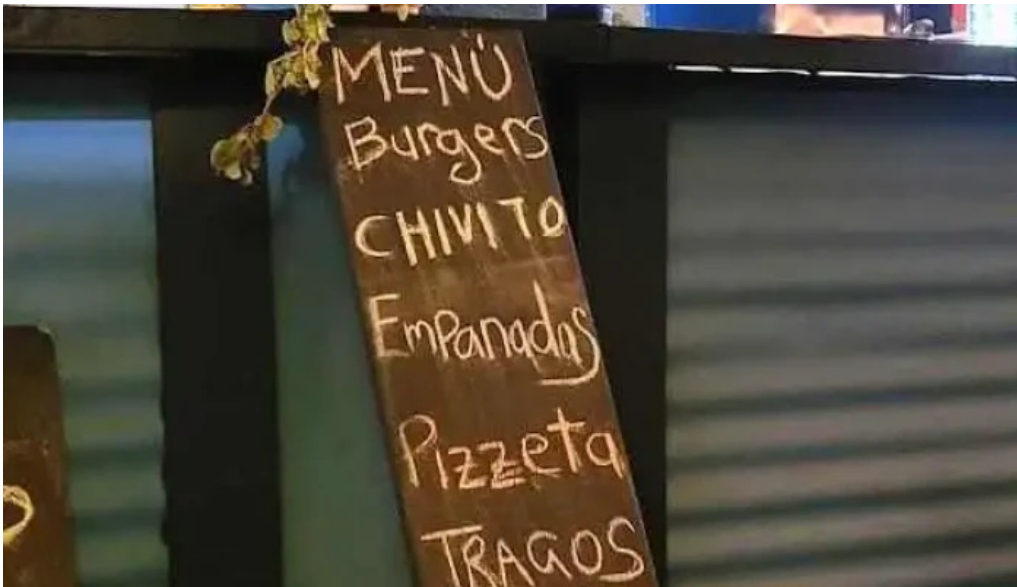 MENÚ
Burgers
CHIVITO
Empanadas
Pizzeta
TRAGOS